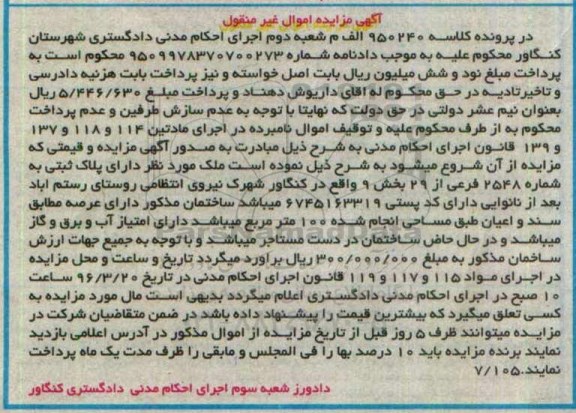 آگهی مزایده اموال غیر منقول
در پرونده کلاسه ۹۵۰۲۴۰ الف م شعبه دوم اجرای احکام مدنی دادگستری شهرستان
کنگاور محکوم علیه به موجب دادنامه شماره ۹۵۰۹۹۷۸۳۷۰۷۰۰۲۷۳ محکوم است به
پرداخت مبلغ نود و شش میلیون ریال بابت اصل خواسته و نیز پرداخت بابت هزینه دادرسی
و تاخیر تادیه در حق محکوم له اقای داریوش دهناد و پرداخت مبلغ ۵/۴۴۶/۶۳۰ ریال
بعنوان نیم عشر دولتی در حق دولت که نهایتا با توجه به عدم سازش طرفین و عدم پرداخت
محکوم به از طرف محکوم علیه و توقیف اموال نامبرده در اجرای مادتین ۱۱۴ و ۱۱۸ و ۱۳۷
و ۱۳۹ قانون اجرای احکام مدنی به شرح ذیل مبادرت به صدور آگهی مزایده و قیمتی که
مزایده از آن شروع میشود به شرح ذیل نموده است ملک مورد نظر دارای پلاک ثبتی به
شماره ۲۵۴۸ فرعی از ۲۹ بخش ۹ واقع در کنگاور شهرک نیروی انتظامی روستای رستم اباد
بعد از نانوایی دارای کد پستی ۶۷۴۵۱۶۳۳۱۹ میباشد ساختمان مذکور دارای عرصه مطابق
سند و اعیان طبق مساحی انجام شده ۱۰۰ متر مربع میباشد دارای امتیاز آب و برق و گاز
میباشد و در حال حاض ساختمان در دست مستاجر میباشد و با توجه به جمیع جهات ارزش
ساخمان مذکور به مبلغ ۳۰۰/۰۰۰/۰۰۰ ریال براورد میگردد تاریخ و ساعت و محل مزایده
در اجرای مواد ۱۱۵ و ۱۱۷ و ۱۱۹ قانون اجرای احکام مدنی در تاریخ ۹۶/۳/۲۰ ساعت
۱۰ صبح در اجرای احکام مدنی دادگستری اعلام میگردد بدیهی است مال مورد مزایده به
کسی تعلق میگیرد که بیشترین قیمت را پیشنهاد داده باشد در ضمن متقاضیان شرکت در
مزایده میتوانند ظرف ۵ روز قبل از تاریخ مزایده از اموال مذکور در آدرس اعلامی بازدید
نمایند برنده مزایده باید ۱۰ درصد بها را فی المجلس و مابقی را ظرف مدت یک ماه پرداخت
نمایند.۷/۱۰۵
دادورز شعبه سوم اجرای احکام مدنی دادگستری کنگاور